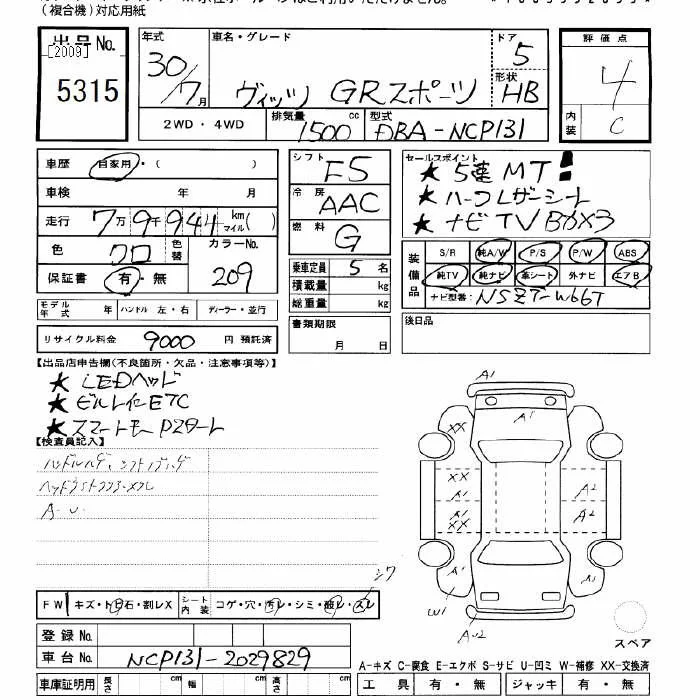 (複合機)対応用紙
出品No.
[2009]
5315
年式
30/7月
車名・グレード
ヴィッツ GRスポーツ
ドア
5
形状
HB
評価点
4
内装
C
2WD・4WD
排気量
1500cc
型式
DBA-NCP131
車歴 自家用・( )
車検 年 月
走行 7万9千944km マイル( )
色 クロ 色替
カラーNo.
209
保証書 有・無
モデル年式 年 ハンドル 左・右 ディーラー・並行
リサイクル料金 9000 円 預託済
シフト F5
冷房 AAC
燃料 G
乗車定員 5名
積載量 kg
総重量 kg
書類期限
月 日
セールスポイント
★ 5速MT!
★ ハーフレザーシート
★ ナビTV BカX3
装備品
S/R 純A/W P/S P/W ABS
純TV 純ナビ 革シート 外ナビ エアB
ナビ型番: NSZT-W66T
後日品
【出品店申告欄(不良箇所・欠品・注意事項等)】
★ LEDヘッド
★ ビルトインETC
★ スマートキー Pスタート
【検査員記入】
A1
A1
XX
XX
A1
A1
XX
A2
A2
A1
A1
W1
AU2
シワ
FW キズ・ト石・割レX
シート内装 コゲ・穴・汚レ・シミ・破レ・スレ
登録No.
車台No. NCP131-2029829
車庫証明用 長さ cm 幅 cm 高さ cm
スペア
A-キズ C-腐食 E-エクボ S-サビ U-凹ミ W-補修 XX-交換済
工具 有・無 ジャッキ 有・無